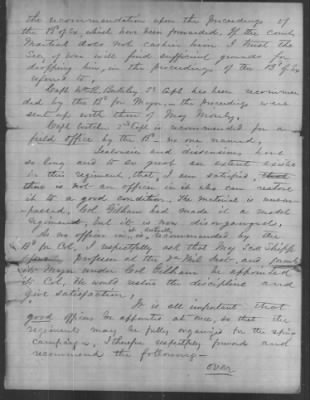 the recommendation upon the Proceedings of
the Bd of Ex, which have been forwarded. If the Court
Martial does not cashier him I trust the
Sec of War will find sufficient grounds for
dropping him, in the proceedings of the Bd of Ex
referred to.
Capt Berkeley Sr Capt has been recommen
ded by the Bd for Major. - the proceedings were
sent up with those of Maj
Capt 2nd Capt is recommended for a
field office by the Bd - no one named.
and dissensions have
so long and to so great an extent existed
in this regiment, that, I am satisfied,
there is not an officer in it who can restore
it to a good condition. The material is unsur-
passed, Col Gilham had made it a model
regiment but it is now disorganized.
As no officer in it is recommended by the
Bd for Col, I respectfully ask that Maj Scott Shipp
Professor at the Va Mil Inst - and
Major under Col Gilham be appointed
its Col, He would restore the discipline and
give satisfaction.
It is all important that
good officers be appointed at once, so that the
regiment may be fully organized for the spring
campaign. I therefore respectfully forward and
recommend the following -
over